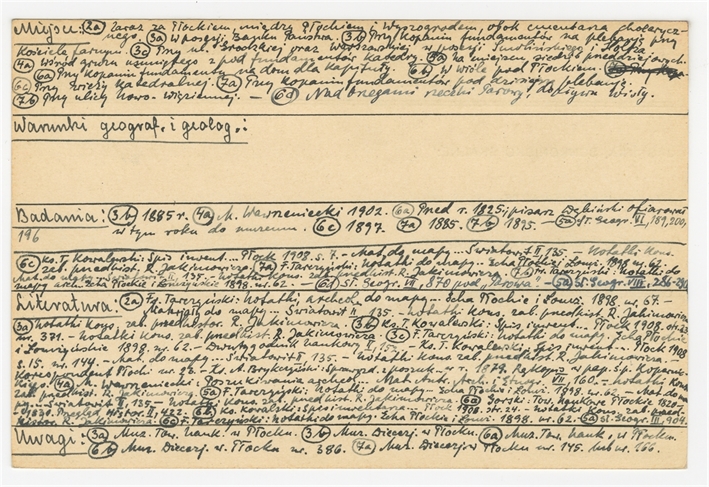 Miejsc.: (2a) Zaraz za Płockiem, między Płockiem i Wyszogrodem, obok cmentarza cholerycz-
nego. (3a) W posesji Banku Państwa. (3b) Przy kopaniu fundamentów na plebanii przy
Kościele farnym. (3c) Przy ul. Grodzkiej oraz Warszawskiej w posesji i
(4a) Wśród gruzu usuniętego z pod fundamentów katedry. (5a) na miejscu siedzib przedziejowych.
(6a) Przy kopaniu fundamentów na dom dla kapituły. (6b) W Wiśle pod Płockiem.
(6c) Przy wieży Katedralnej. (7a) Przy kopaniu fundamentów pod dzisiejszą plebanię.
(7b) Przy ulicy nowo-więziennej. — (6d) Nad brzegami rzeczki , dopływu Wisły.
Warunki geograf. i geolog.:
Badania: (3b) 1885 r. (4a) M. Wawrzeniecki 1902. (6a) Przed r. 1825; pisarz Dębiński ofiarował
196 w tym roku do muzeum. (6c) 1897. (7a) 1885. (7b) 1895. — (5a) Sł. Geogr. VI, 189, 200,
(6c) Ks. T. Kowalski: Spis inwent... Płock 1908. s. 7. — Mat. do mapy... Światowit II, 135. — Notatki Kon.
zab. przedhist. R. Jakimowicza. (7a) F. Tarczyński: notatki do mapy... Echa Płockie i Łomż. 1898 nr. 62 —
Mat. do mapy 135. — notatki Kons. zab. przedhist. R. Jakimowicza. (7b) F. Tarczyński: Notatki do
mapy arch. Echa Płockie i Łomżyńskie 1898. nr. 62. — (6d) Sł. Geogr. VII, 870 pod " — (5a) Sł. Geogr. VIII, 236-240
Literatura: (2a) Fr. Tarczyński: Notatki archeol. do mapy.- Echa Płockie i Łomż. 1898. nr. 67. —
Materjały do mapy... Światowit II, 135. — notatki Kons. zab. przedhist. R. Jakimowicza
(3a) notatki Kons. zab. przedhistor. R. Jakimowicza. (3b) Ks. T. Kowalewski: Spis inwent... Płock 1908.
nr. 371. — notatki Kons. zab. przedhist. R. Jakimowicza. (3c) F. Tarczyński: notatki do mapy. Echa Płockie
i Łomżyńskie 1898. nr. 62. — naukowy I, 15. — Ks. T. Kowalewski: Spis inwent... Płock 1908
s. 15. nr. 144. — Mat. do mapy... Światowit II, 135. — notatki Kons. zab. przedhist. R. Jakimowicza
Korespondent Płocki nr. 22. — Ks. M. Brykczyński: Sprawozd. z poszuk. w r. 1879. Rękopis w pap. śp.
(4a) M. Wawrzeniecki: Poszukiwania archeol. Mat. Antr. Arch. i Etnogr. VII 160. — notatki Kons.
zab. przedhist. R. Jakimowicza. (5a) F. Tarczyński: notatki do mapy... Echa Płockie i Łomż. 1898. nr. 62. — Mat. do ma-
py... Światowit II, 135. — notatki Kons. zab. przedhist. R. Jakimowicza. (6a) Gorski: Tow. Naukowe Płockie 1820
-1830. Przegląd Histor. II, 422. (6b) Ks. Kowalski: Spis inwentarza... Płock 1908. str. 24. — notatki Kons. zab. przed-
histor. R. Jakimowicza: (6c) F. Tarczyński: notatki do mapy... Echa Płockie i Łomż. 1898. nr. 62. (5a) Sł. Geogr. 904.
Uwagi: (3a) Muz. Tow. nauk. w Płocku. (3b) Muz. Diecezj. w Płocku. (6a) Muz. Tow. nauk. w Płocku.
(6b) Muz. Diecezj. w Płocku nr. 386. (7a) Muz. Diecezj. w Płocku nr. 145. lub nr. 166.